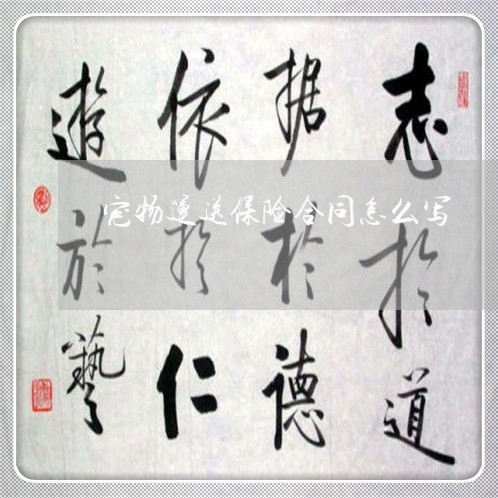 志於道
据於德
依於仁
遊於藝
宠物運送保险合同怎么写